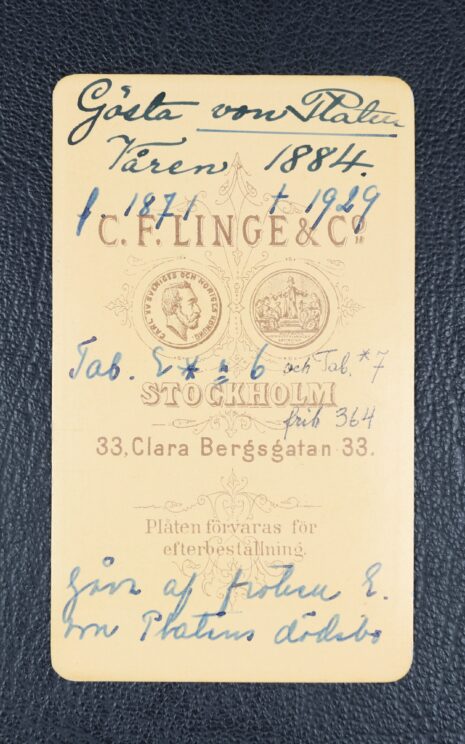 Gösta von Platen
Våren 1884.
f. 1871 † 1929
C. F. LINGE & Co
CARL XV SVERIGES OCH NORIGES KONUNG
Tab. 2 * 6 och Tab. * 7
STOCKHOLM
frih 364
33, Clara Bergsgatan 33.
Plåten förvaras för
efterbeställning.
gåva af fröken E.
von Platens dödsbo